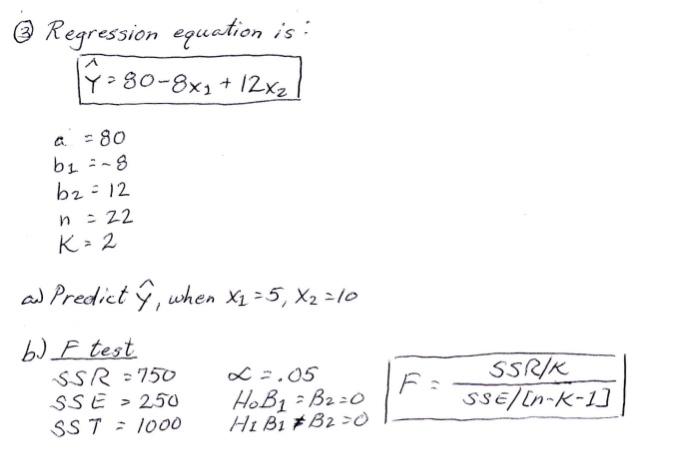 ③ Regression equation is:
Ŷ = 80-8x₁ + 12x₂
a = 80
b₁ = -8
b₂ = 12
n = 22
K = 2
a) Predict Ŷ, when X₁ = 5, X₂ = 10
b.) F test
SSR = 750
SSE = 250
SST = 1000
α = .05
H₀ B₁ = B₂ = 0
H1 B1 ≠ B2 = 0
F = SSR/K
SSE/[n-K-1]